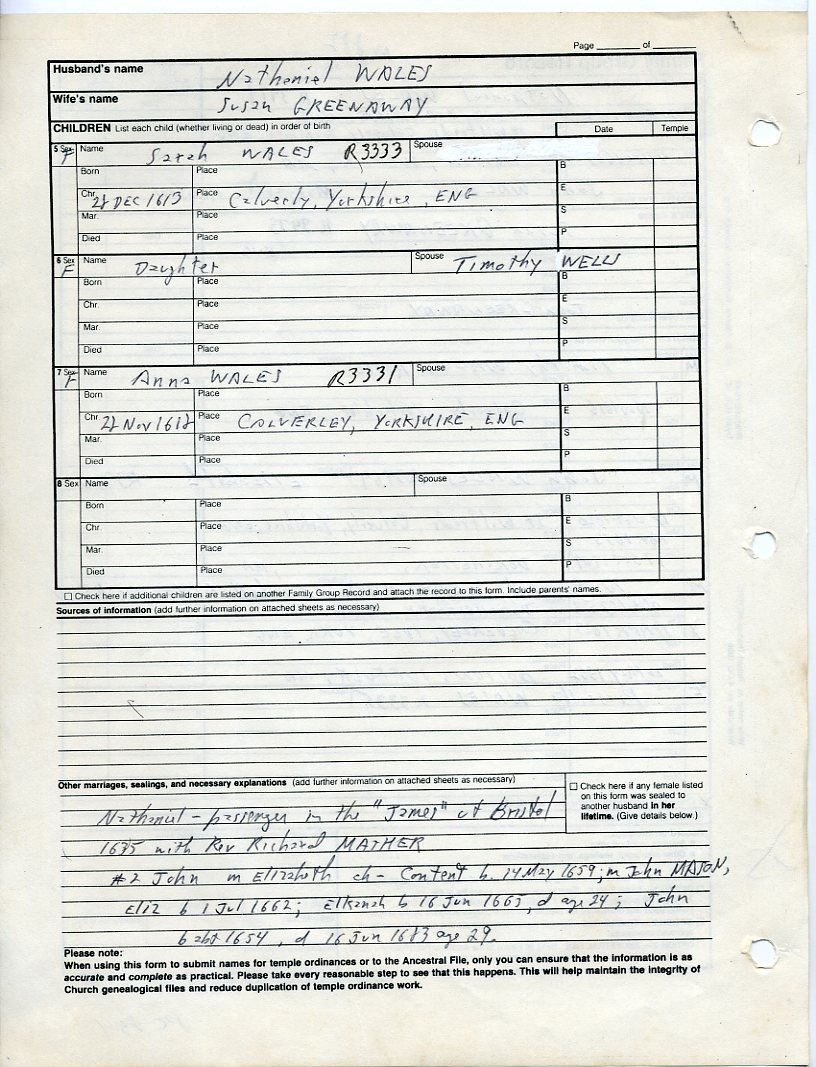 Page ______ of ______
Husband's name Nathaniel WALES
Wife's name Susan GREENAWAY
CHILDREN List each child (whether living or dead) in order of birth Date Temple
5 Sex F Name Sarah WALES R3333 Spouse
Born Place B
Chr. 28 DEC 1613 Place Calverly, Yorkshire, ENG E
Mar. Place S
Died Place P
6 Sex F Name Daughter Spouse Timothy WELLS
Born Place B
Chr. Place E
Mar. Place S
Died Place P
7 Sex F Name Anna WALES R3331 Spouse
Born Place B
Chr. Nov 1618 Place CALVERLEY, YORKSHIRE, ENG E
Mar. Place S
Died Place P
8 Sex Name Spouse
Born Place B
Chr. Place E
Mar. Place S
Died Place P
☐ Check here if additional children are listed on another Family Group Record and attach the record to this form. Include parents' names.
Sources of information (add further information on attached sheets as necessary)
Other marriages, sealings, and necessary explanations (add further information on attached sheets as necessary)
☐ Check here if any female listed
on this form was sealed to
another husband in her
lifetime. (Give details below.)
Nathaniel - passenger in the "James" at Bristol
1635 with Rev Richard MATHER
#2 John m Elizabeth ch - Content b. 14 May 1659; m John MASON,
Eliz b 1 Jul 1662; Elkanah b 16 Jun 1663, d age 24; John
b abt 1654, d 16 Jun 1683 age 29.
Please note:
When using this form to submit names for temple ordinances or to the Ancestral File, only you can ensure that the information is as
accurate and complete as practical. Please take every reasonable step to see that this happens. This will help maintain the integrity of
Church genealogical files and reduce duplication of temple ordinance work.